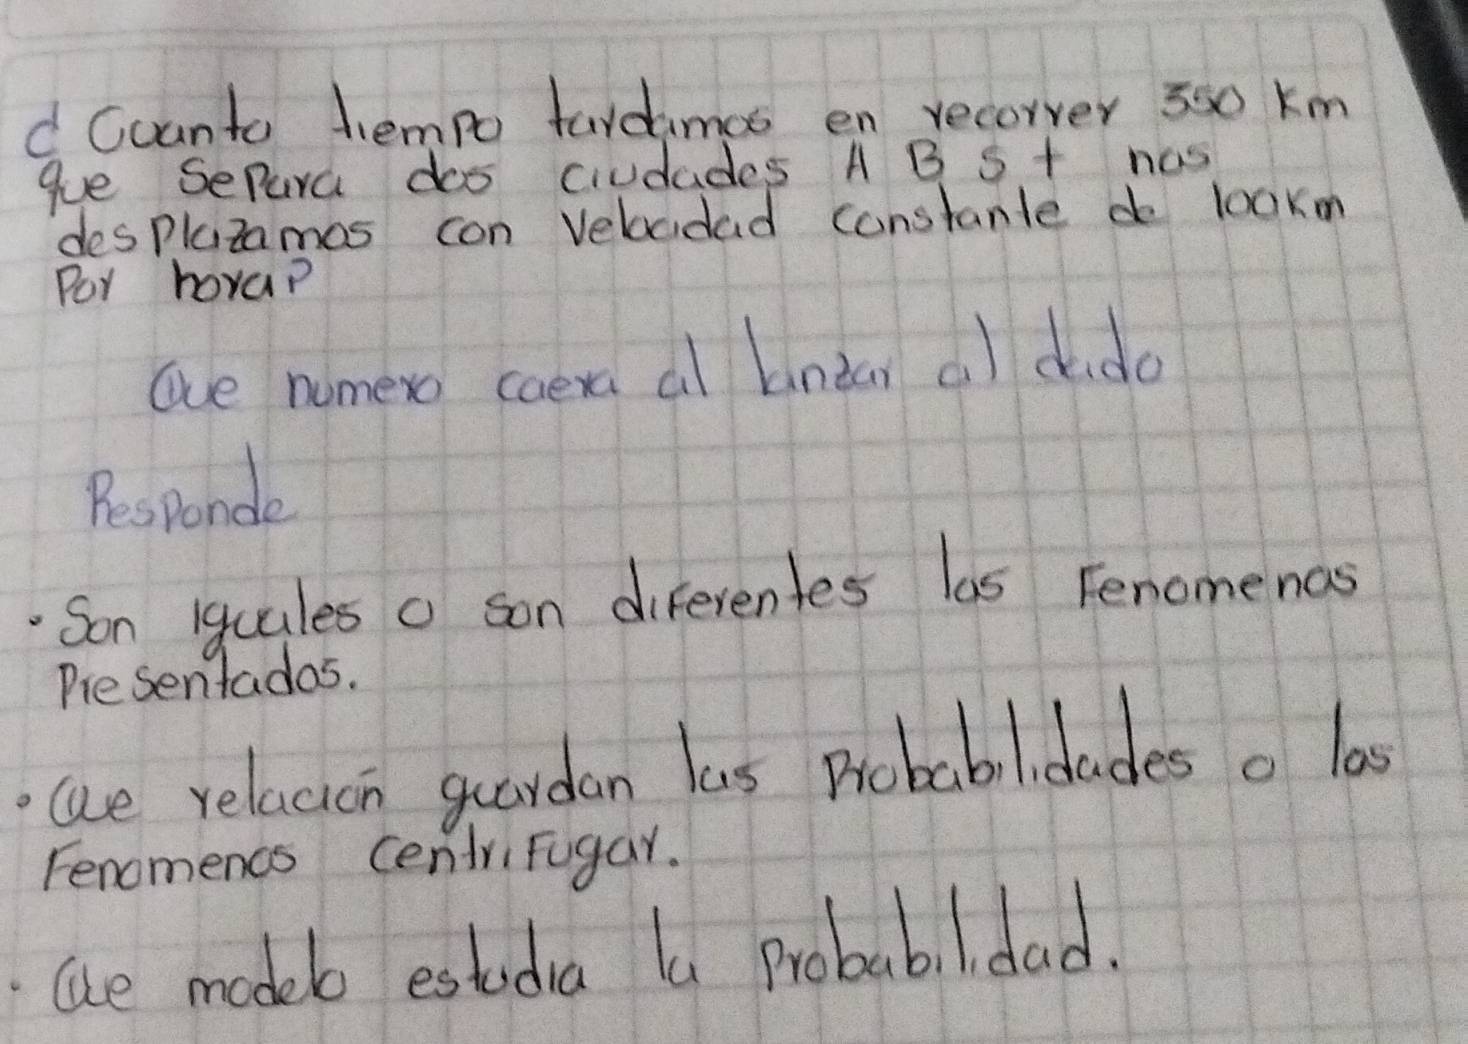 d Cuanto tiempo tardamos en recorrer 350 Km
que Separa dos ciudades A B S t nos
desplazamos con Velocidad constante de 100Km
Por hora?
Que numero caera al lanzar al dado
Responde
• Son iguales o son diferentes los Fenomenos
Presentados.
• Que relación guardan las Probabilidades o los
Fenomenos centrifugar.
• Que modelo estudia la probabilidad.